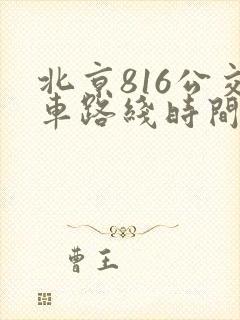 北京816公交
車路綫時間
曹王